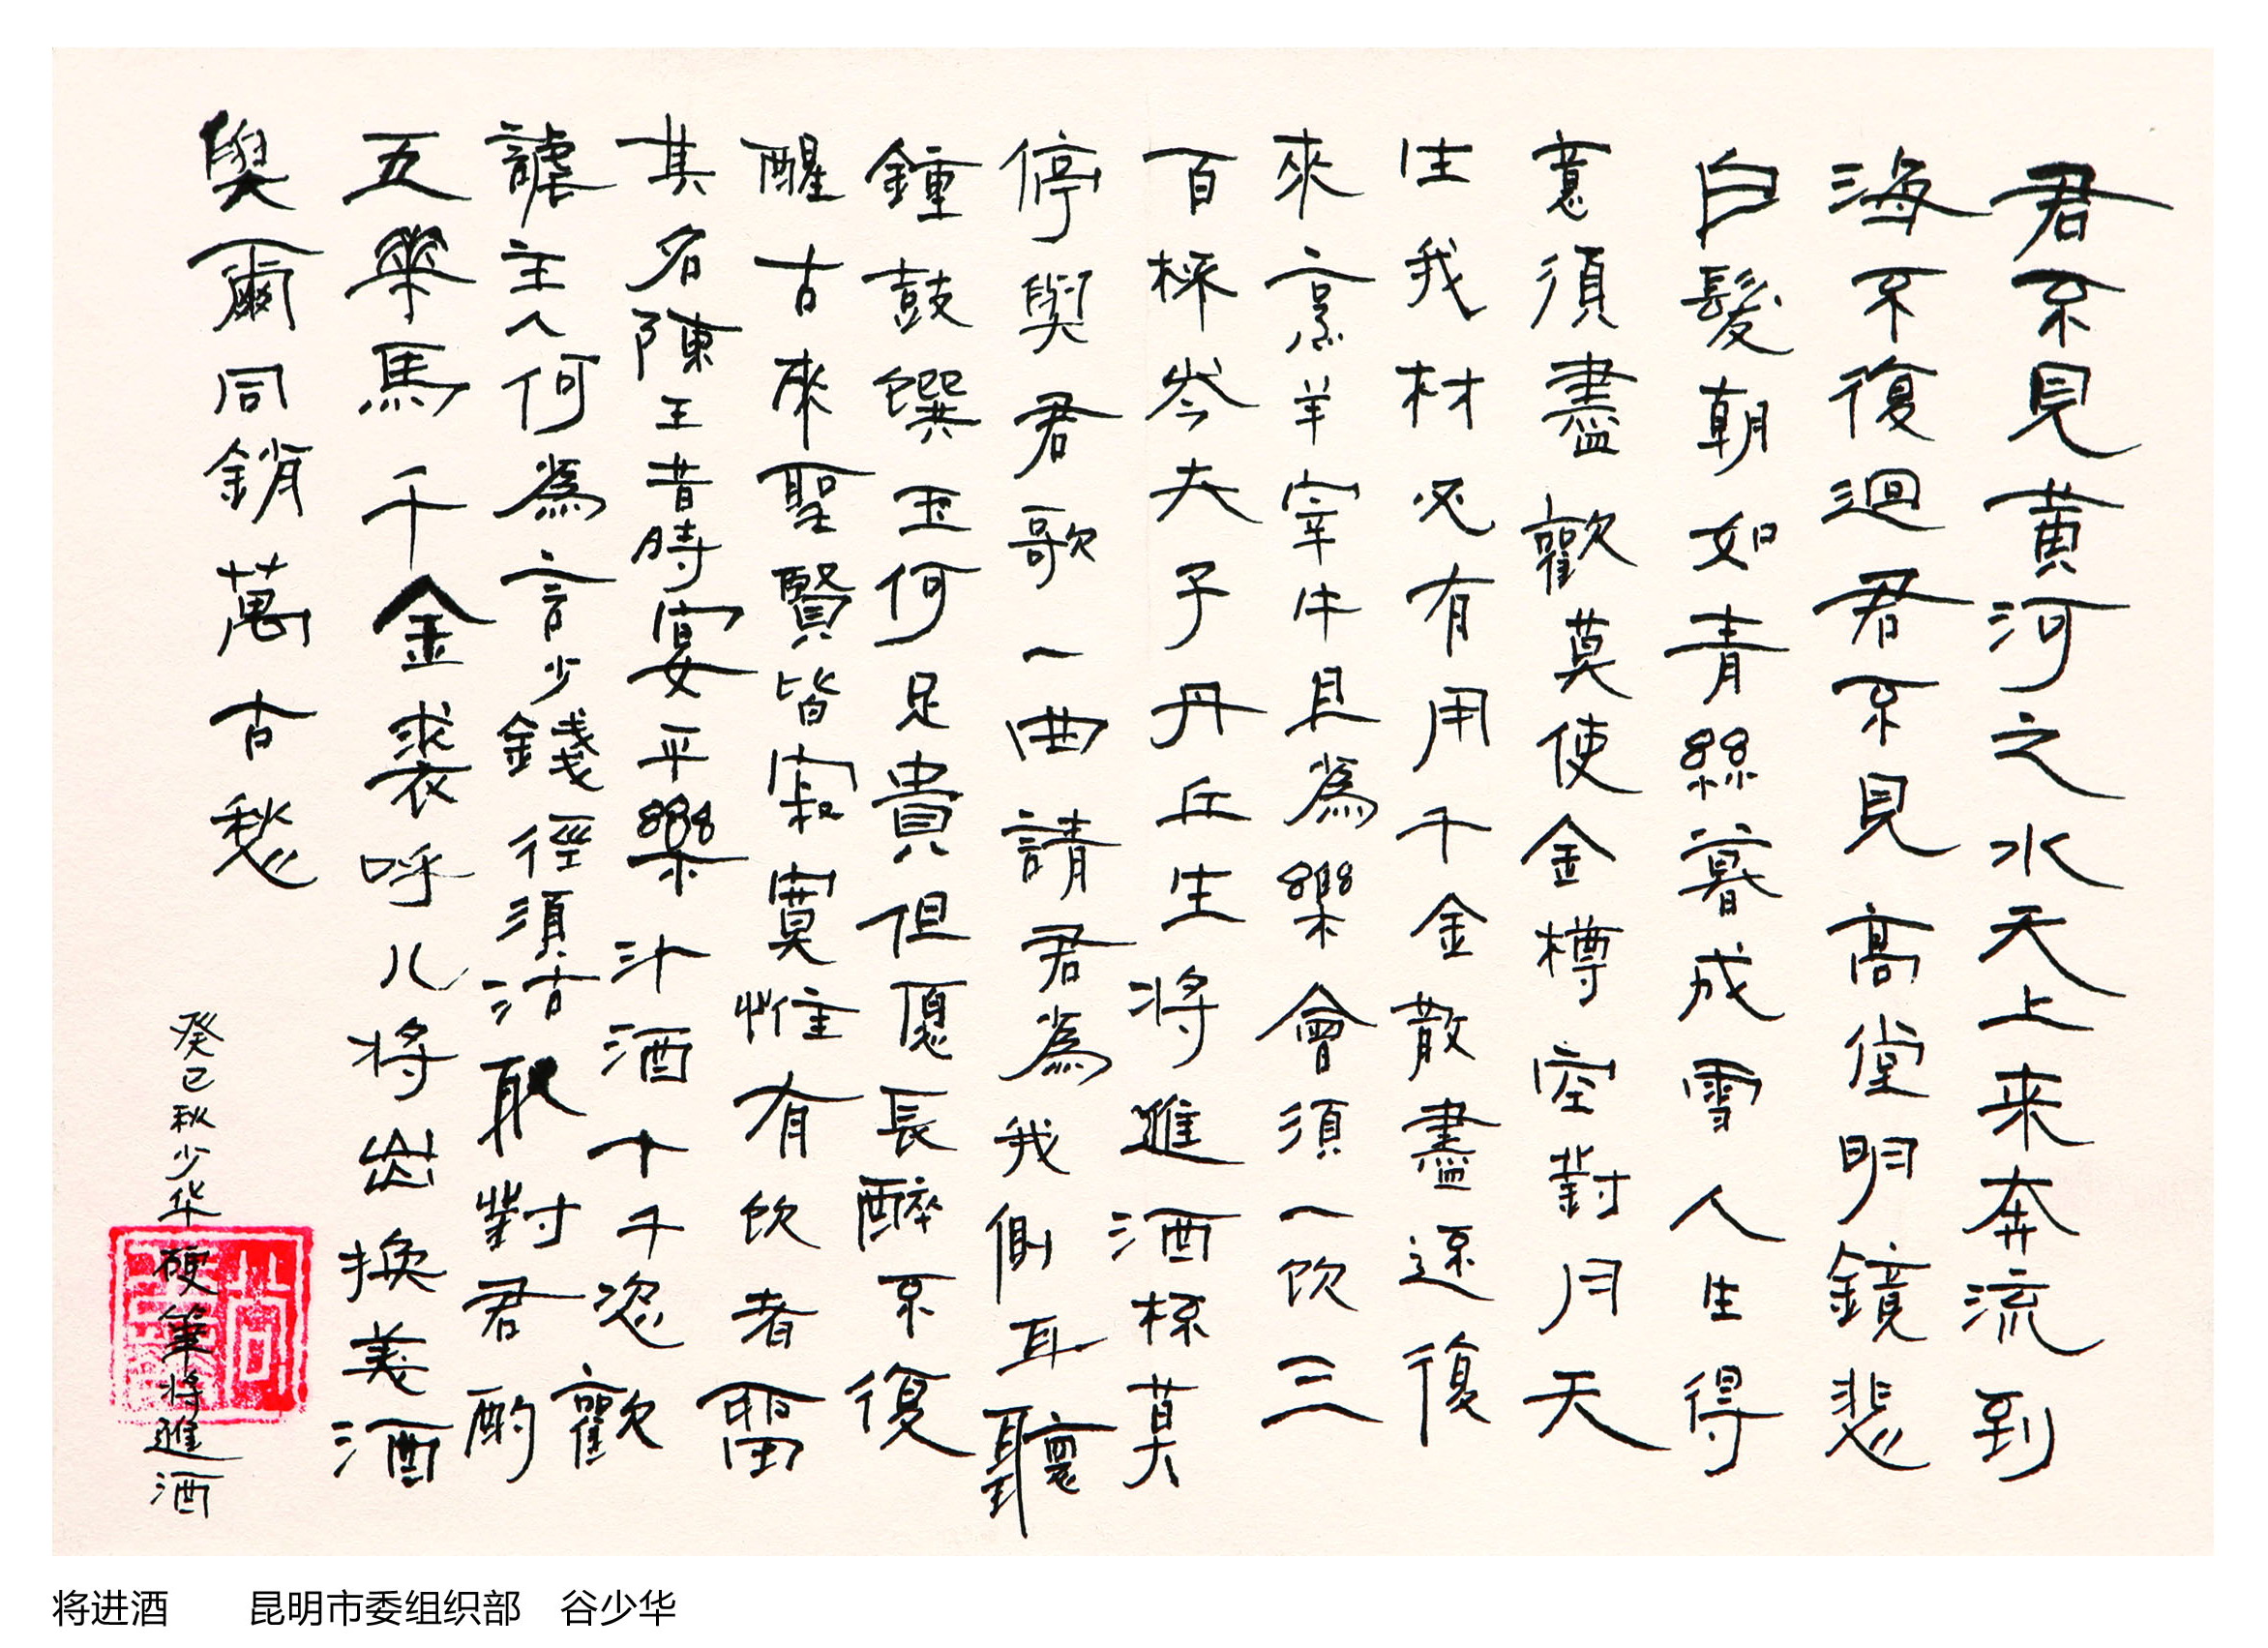 君不見黄河之水天上来奔流到
海不復迴君不見高堂明鏡悲
白髮朝如青絲暮成雪人生得
意須盡歡莫使金樽空對月天
生我材必有用千金散盡還復
來烹羊宰牛且為樂會須一飲三
百杯岑夫子丹丘生将進酒杯莫
停與君歌一曲請君為我側耳聽
鍾鼓饌玉何足貴但願長醉不復
醒古來聖賢皆寂寞惟有飲者留
其名陳王昔時宴平樂斗酒十千恣歡
謔主人何為言少錢徑須沽取對君酌
五華馬千金裘呼儿将出換美酒
與爾同銷萬古愁
癸巳秋少华硬筆将進酒
将进酒 昆明市委组织部 谷少华